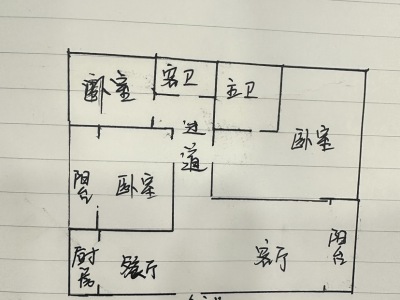 卧室
客卫
主卫
过道
卧室
阳台
卧室
厨房
餐厅
客厅
阳台